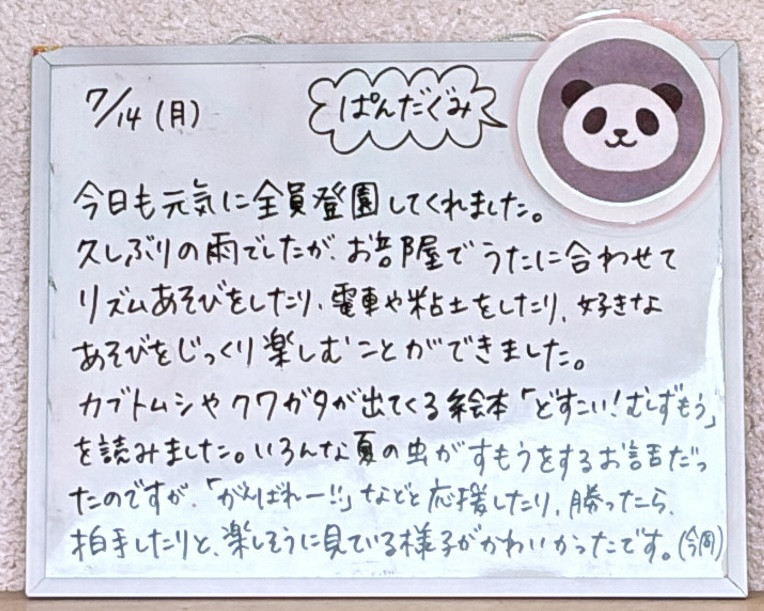 7/14(月)
ぱんだぐみ
今日も元気に全員登園してくれました。
久しぶりの雨でしたが、お部屋でうたに合わせて
リズムあそびをしたり、電車や粘土をしたり、好きな
あそびをじっくり楽しむことができました。
カブトムシやクワガタが出てくる絵本「どすこい!むしずもう」
を読みました。いろんな夏の虫がすもうをするお話だっ
たのですが、「がんばれー!!」などと応援したり、勝ったら、
拍手したりと、楽しそうに見ている様子がかわいかったです。(今岡)